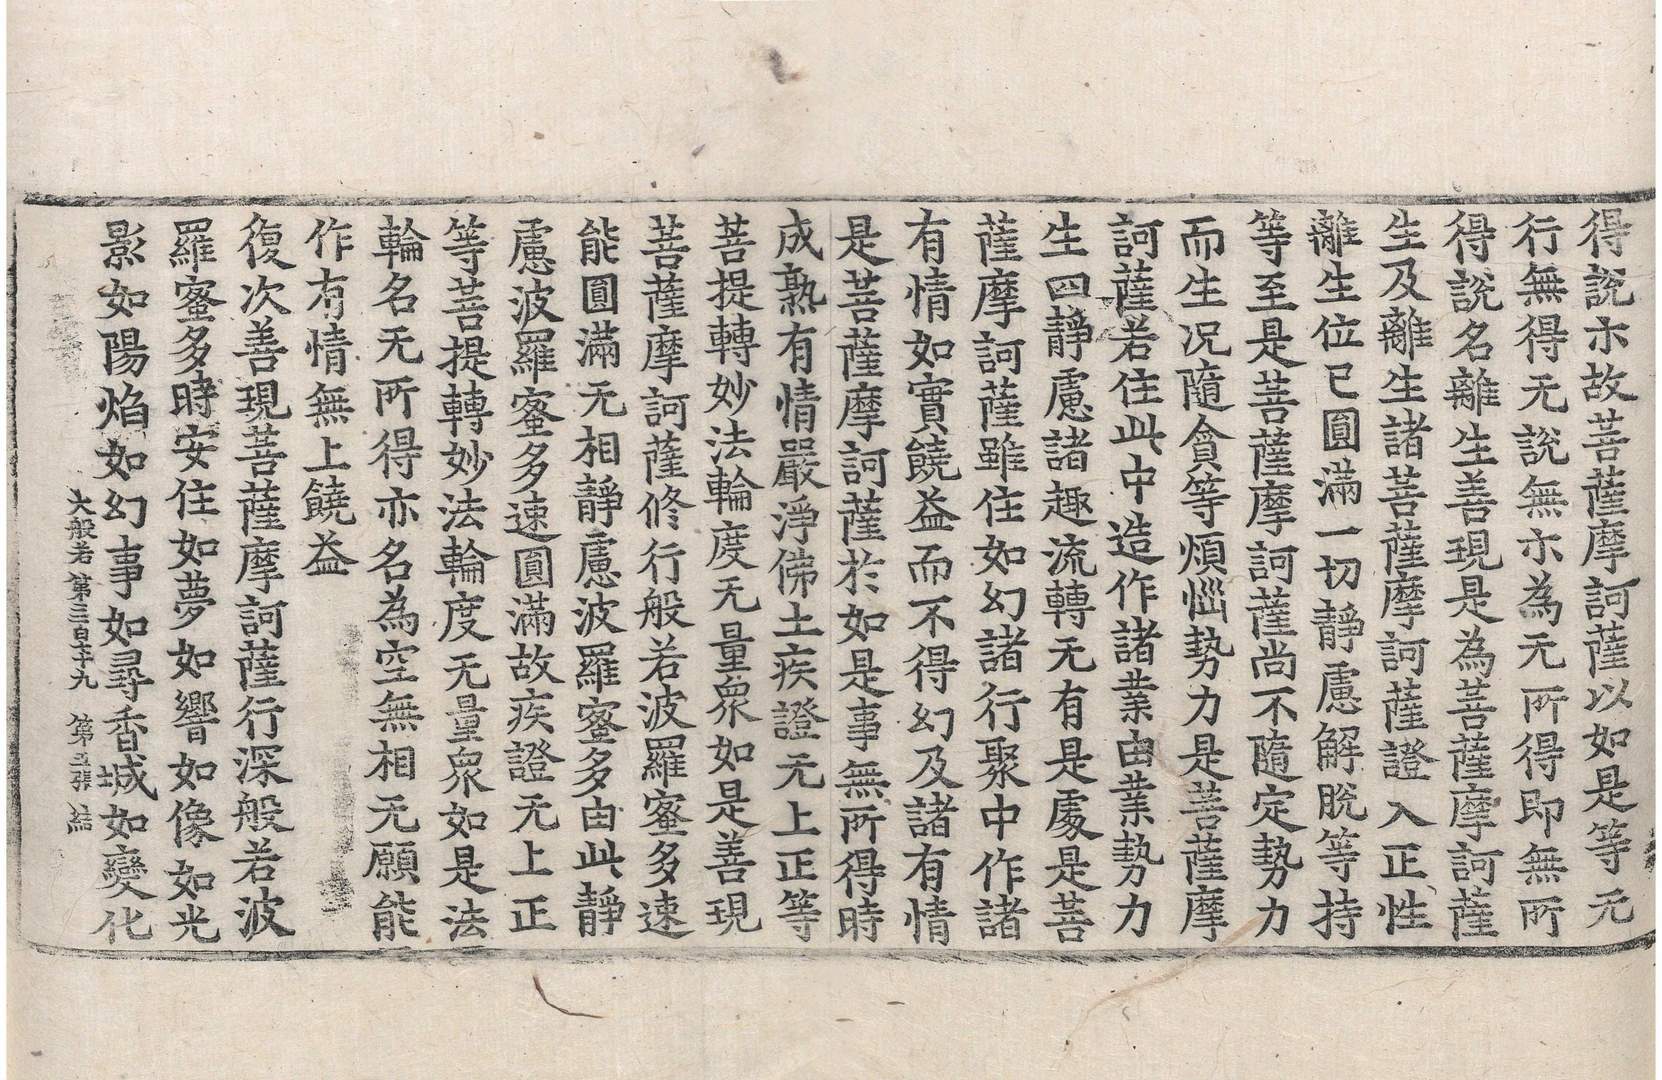 得說亦故菩薩摩訶薩以如是等无
行無得无說無亦為无所得即無所
得說名離生善現是為菩薩摩訶薩
生及離生諸菩薩摩訶薩證入正性
離生位已圓滿一切靜慮解脫等持
等至是菩薩摩訶薩尚不隨定勢力
而生况隨貪等煩惱勢力是菩薩摩
訶薩若住此中造作諸業由業勢力
生四靜慮諸趣流轉无有是處是菩
薩摩訶薩雖住如幻諸行聚中作諸
有情如實饒益而不得幻及諸有情
是菩薩摩訶薩於如是事無所得時
成熟有情嚴淨佛土疾證无上正等
菩提轉妙法輪度无量衆如是善現
菩薩摩訶薩修行般若波羅蜜多速
能圓滿无相靜慮波羅蜜多由此靜
慮波羅蜜多速圓滿故疾證无上正
等菩提轉妙法輪度无量衆如是法
輪名无所得亦名為空無相无願能
作有情無上饒益
復次善現菩薩摩訶薩行深般若波
羅蜜多時安住如夢如響如像如光
影如陽焰如幻事如尋香城如變化
大般若第三百七十九 第五張 結